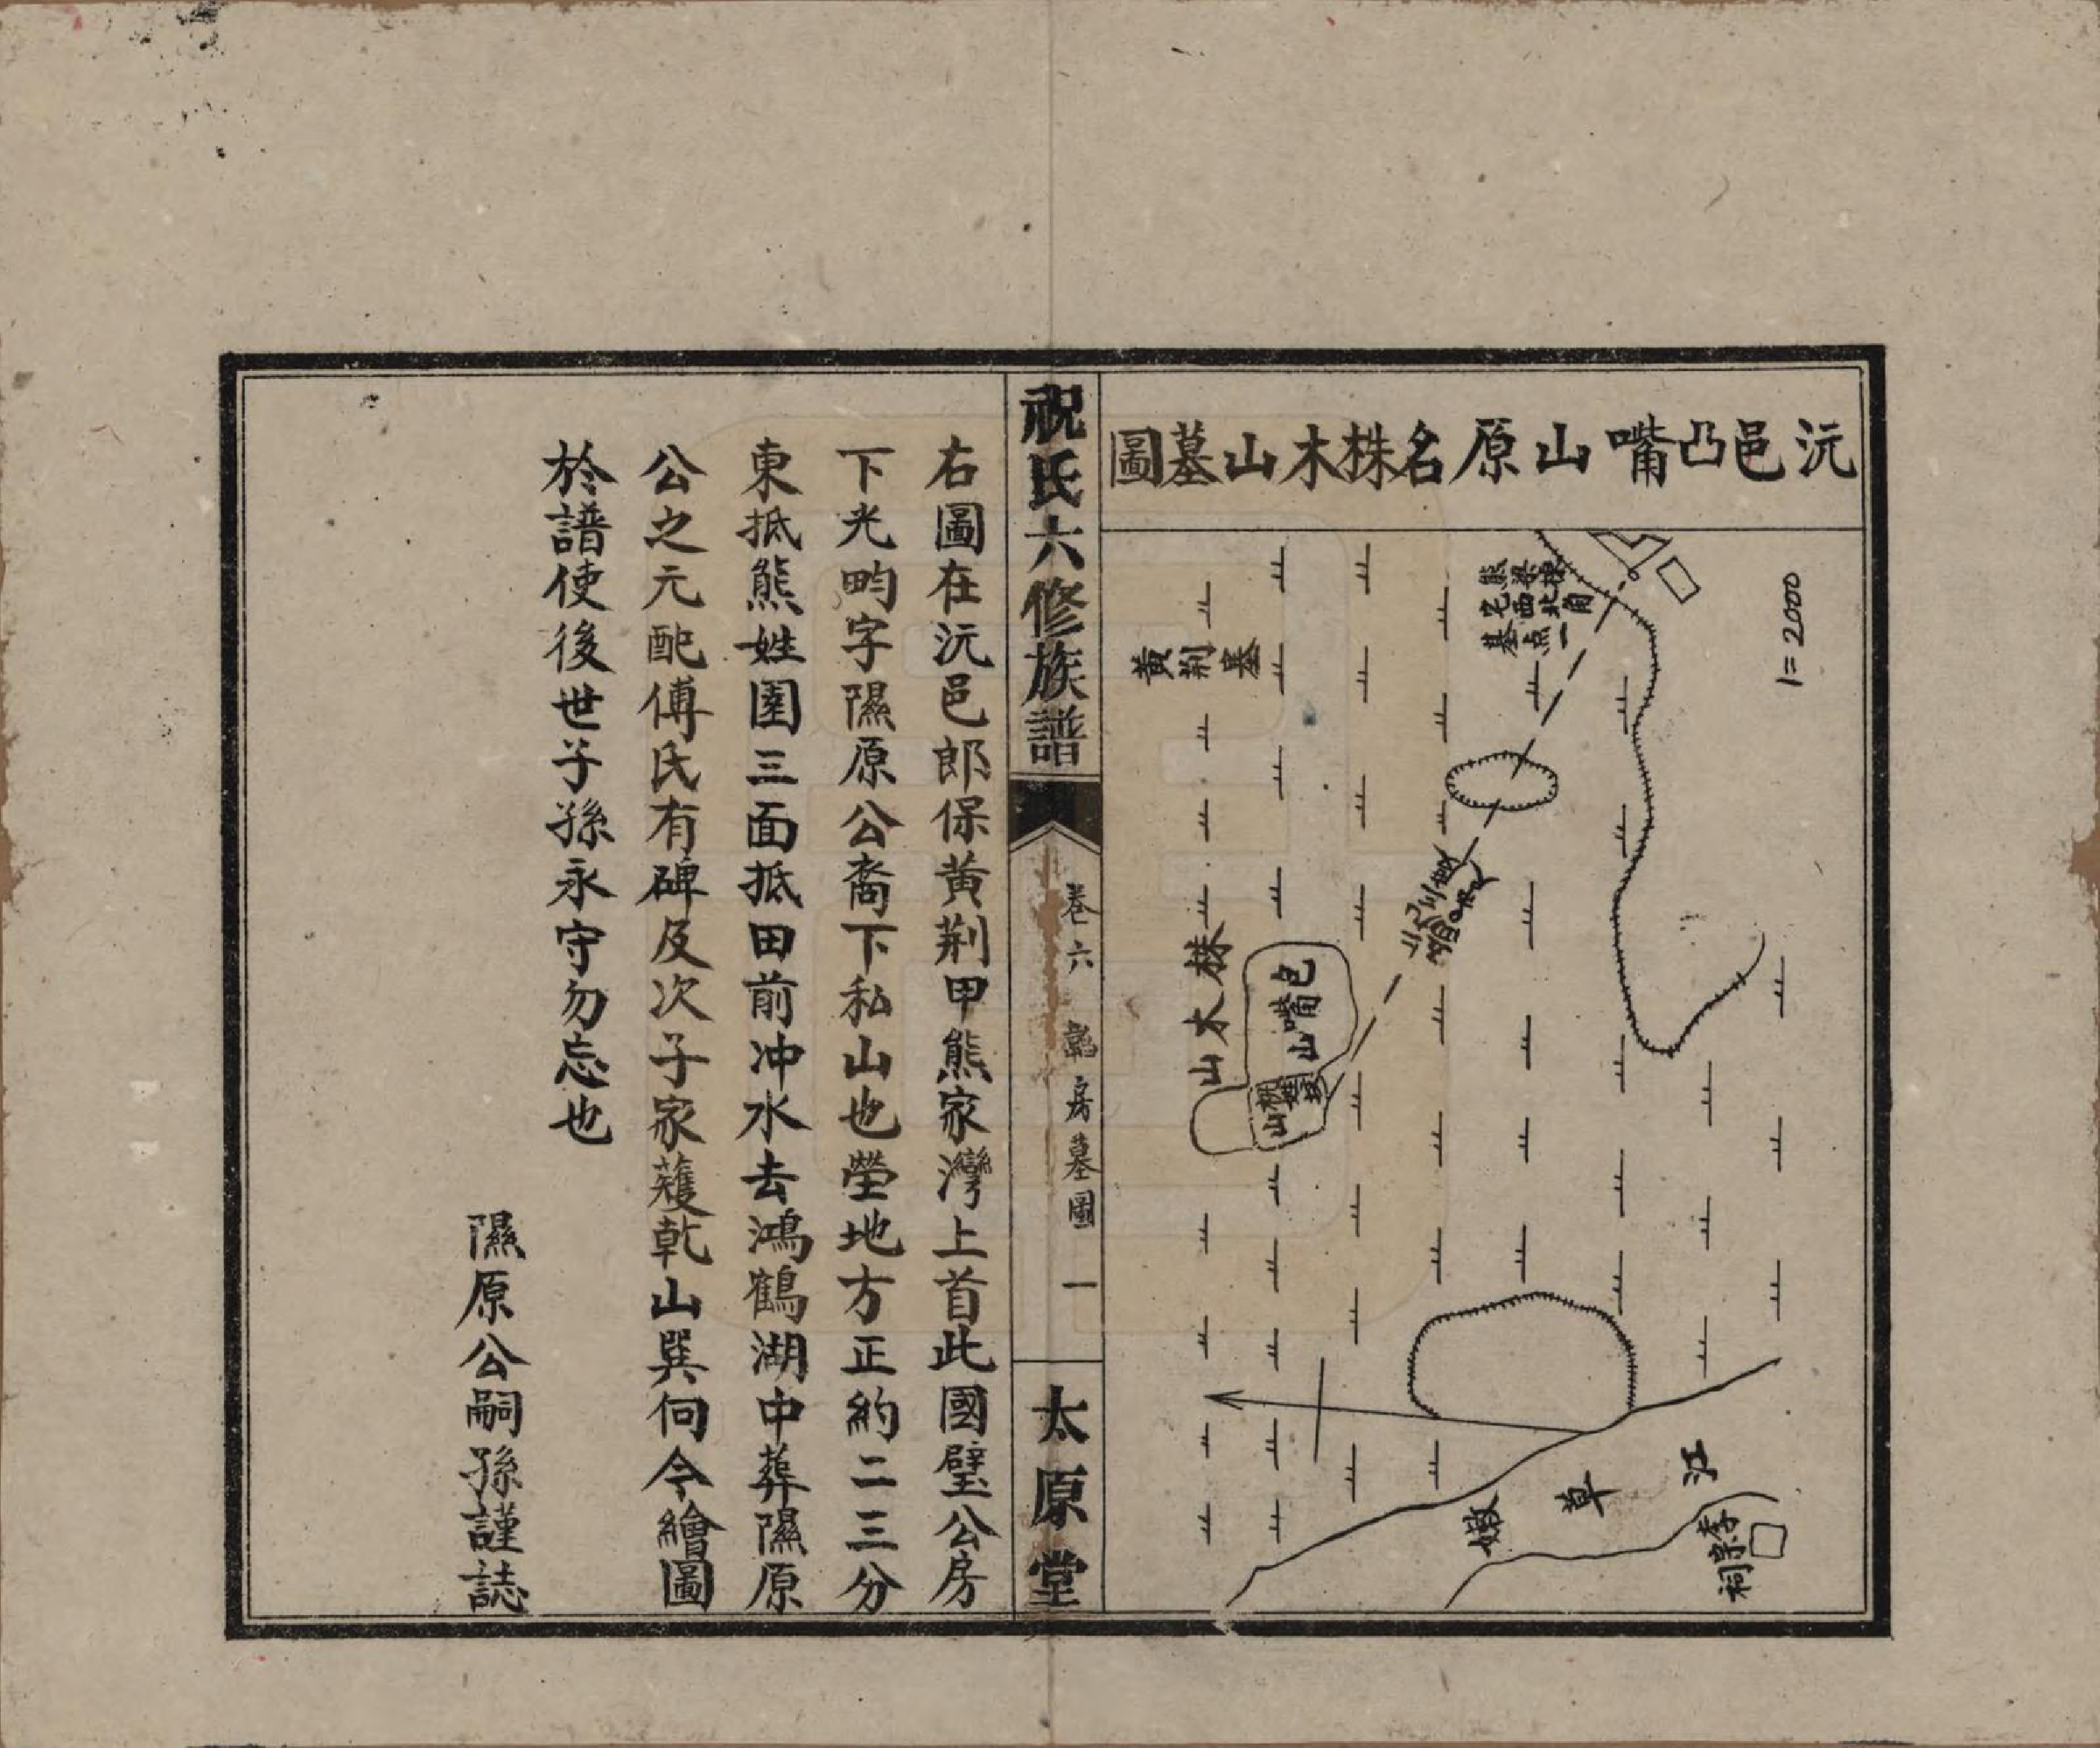 沅邑凸嘴山原名株木山墓圖
1=2000
熊梁棟
宅西北角
基点一
黃荆塞
株木山
包嘴山
江草墩
李宗祠
祝氏六修族譜
卷六
房墓圖
一
太原堂
右圖在沅邑郎保黃荆甲熊家灣上首此國壁公房
下光昀字隰原公裔下私山也塋地方正約二三分
東抵熊姓園三面抵田前冲水去鴻鶴湖中葬隰原
公之元配傅氏有碑及次子家蒦乾山巽向今繪圖
於譜使後世子孫永守勿忘也
隰原公嗣孫謹誌